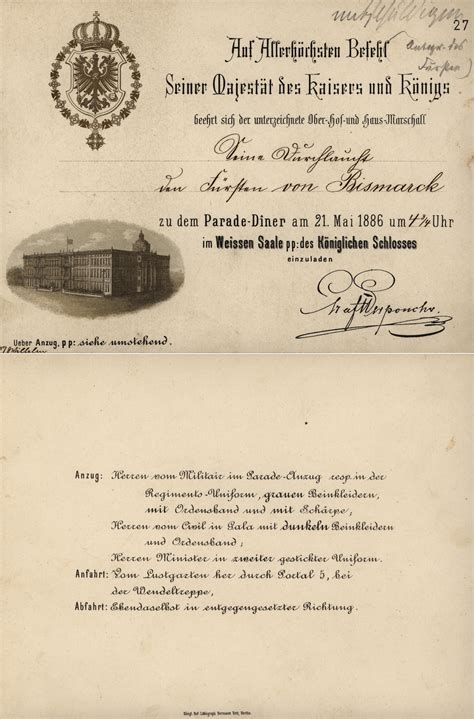 27
Auf Allerhöchsten Befehl
Seiner Majestät des Kaisers und Königs
beehrt sich der unterzeichnete Ober-Hof-und Haus-Marschall
Seine Durchlaucht
den Fürsten von Bismarck
zu dem Parade-Diner am 21. Mai 1886 um 4¾ Uhr
im Weissen Saale pp: des Königlichen Schlosses
einzuladen
Ueber Anzug, pp: siehe umstehend.
Anzug: Herren vom Militair im Parade-Anzug resp. in der
Regiments-Uniform, grauen Beinkleidern,
mit Ordensband und mit Schärpe;
Herren vom Civil in Gala mit dunkeln Beinkleidern
und Ordensband;
Herren Minister in zweiter gestickter Uniform.
Anfahrt: Vom Lustgarten her durch Portal 5, bei
der Wendeltreppe,
Abfahrt: Ebendaselbst in entgegengesetzter Richtung.